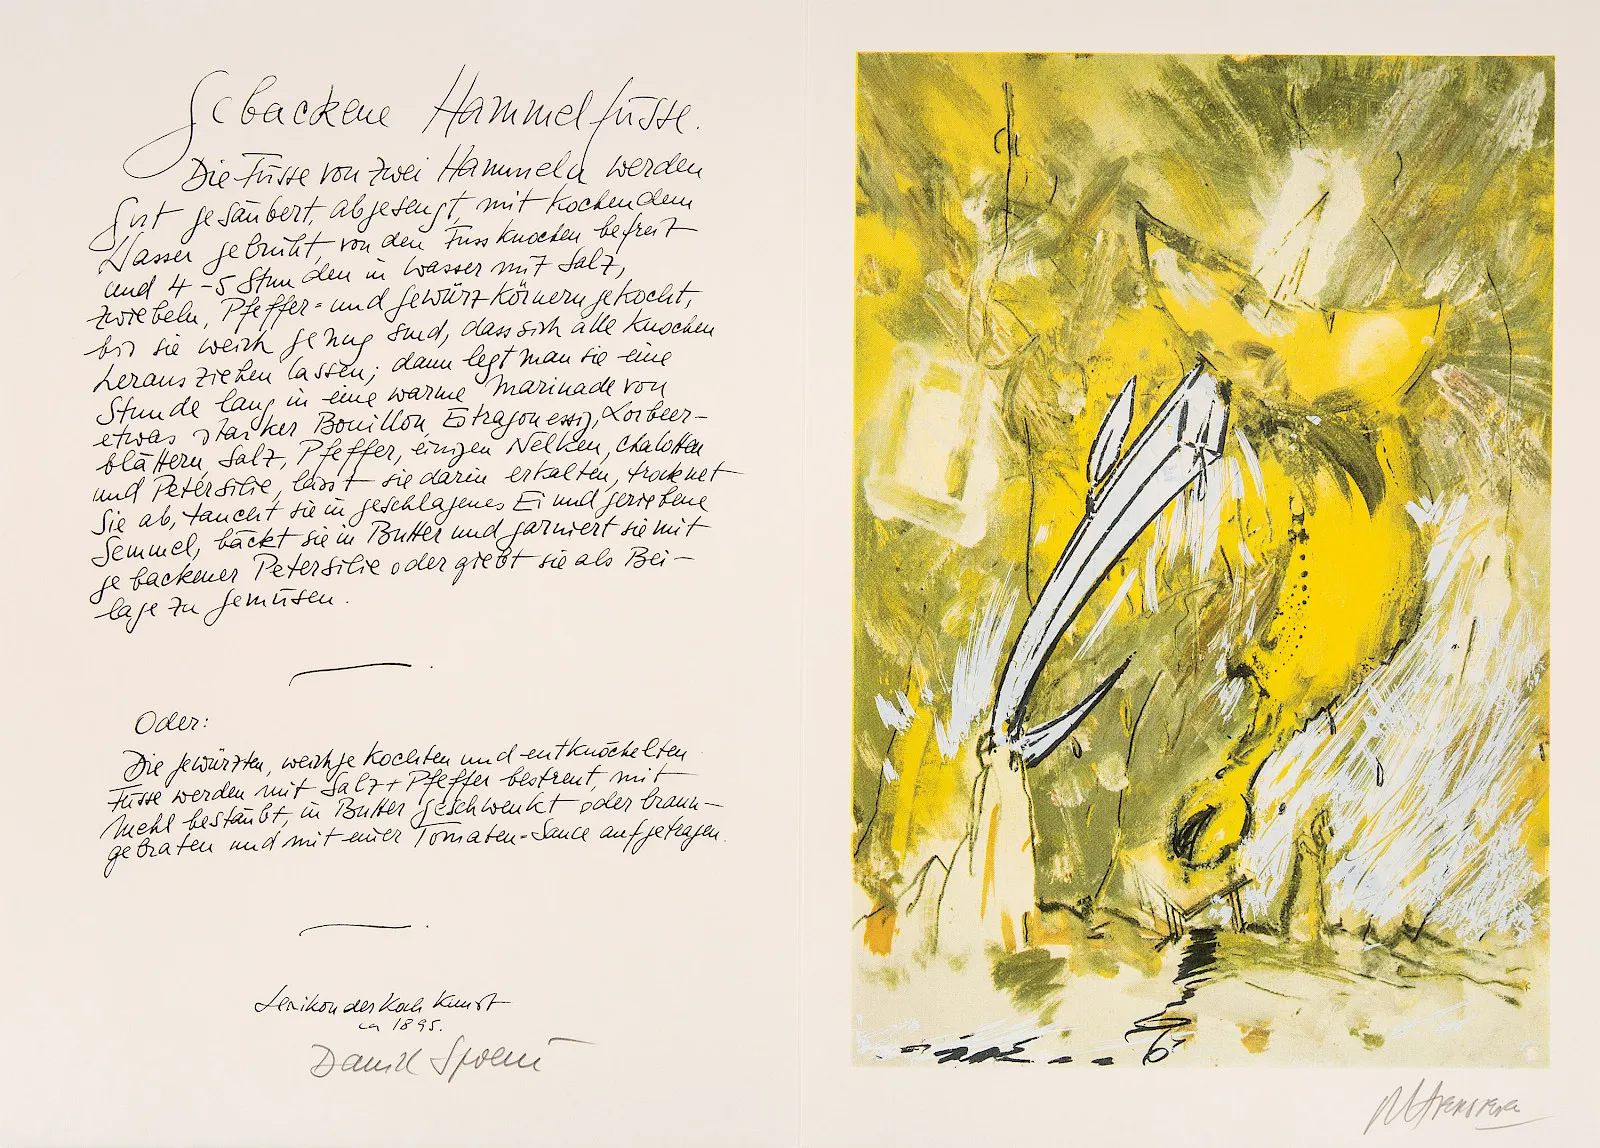 Gebackene Hammelfüsse.
Die Füsse von zwei Hammeln werden
Gut gesäubert, abgesengt, mit kochendem
Wasser gebrüht, von den Fussknochen befreit
und 4-5 Stunden in Wasser mit Salz,
Zwiebeln, Pfeffer= und Gewürzkörnern gekocht,
bis sie weich genug sind, dass sich alle Knochen
herausziehen lassen; dann legt man sie eine
Stunde lang in eine warme Marinade von
etwas starker Bouillon, Estragonessig, Lorbeer-
blättern, Salz, Pfeffer, einigen Nelken, Chalotten
und Petersilie, lässt sie darin erkalten, trocknet
Sie ab, taucht sie in geschlagenes Ei und geriebene
Semmel, bäckt sie in Butter und garniert sie mit
gebackener Petersilie oder giebt sie als Bei-
lage zu Gemüsen.
Oder:
Die gewürzten, weichgekochten und entknöchelten
Füsse werden mit Salz + Pfeffer bestreut, mit
Mehl bestäubt, in Butter geschwenkt oder braun-
gebraten und mit einer Tomaten=Sauce aufgetragen.
Lexikon der Kochkunst
ca 1895.
Daniel Spoerri